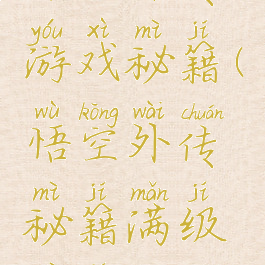 yóu xì mì jí
游戏秘籍(
wù kōng wài chuán
悟空外传
mì jí mǎn jí
秘籍满级